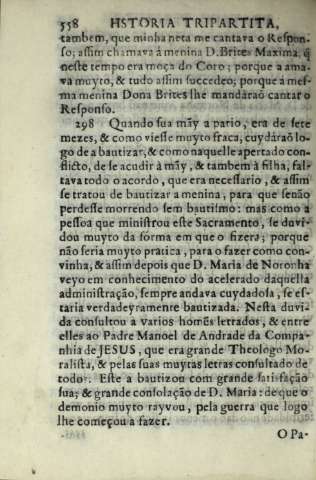 558 HSTORIA TRIPARTITA.
tambem, que minha neta me cantava o Respon-
so; assim chamava à menina D. Brites Maxima, q̃
neste tempo era moça do Coro; porque a ama-
va muyto, & tudo assim succedeo; porque à mes-
ma menina Dona Brites lhe mandàraõ cantar o
Responso.
298 Quando sua mãy a pario, era de sete
mezes, & como viesse muyto fraca, cuydàraõ lo-
go de a bautizar, & como naquelle apertado con-
flicto, de se acudir à mãy, & tambem à filha, fal-
tava todo o acordo, que era necessario, & assim
se tratou de bautizar a menina, para que senão
perdesse morrendo sem bautismo: mas como a
pessoa que ministrou este Sacramento, se duvi-
dou muyto da fórma em que o fizera; porque
não seria muyto pratica, para o fazer como con-
vinha, & assim depois que D. Maria de Noronha
veyo em conhecimento do acelerado daquella
administração, sempre andava cuydadosa, se es-
taria verdadeyramente bautizada. Nesta duvi-
da consultou a varios homẽs letrados, & entre
elles ao Padre Manoel de Andrade da Compa-
nhia de JESUS, que era grande Theologo Mo-
ralista, & pelas suas muytas letras consultado de
todos. Este a bautizou com grande satisfação
sua, & grande consolação de D. Maria: de que o
demonio muyto rayvou, pela guerra que logo
lhe começou a fazer.
O Pa-